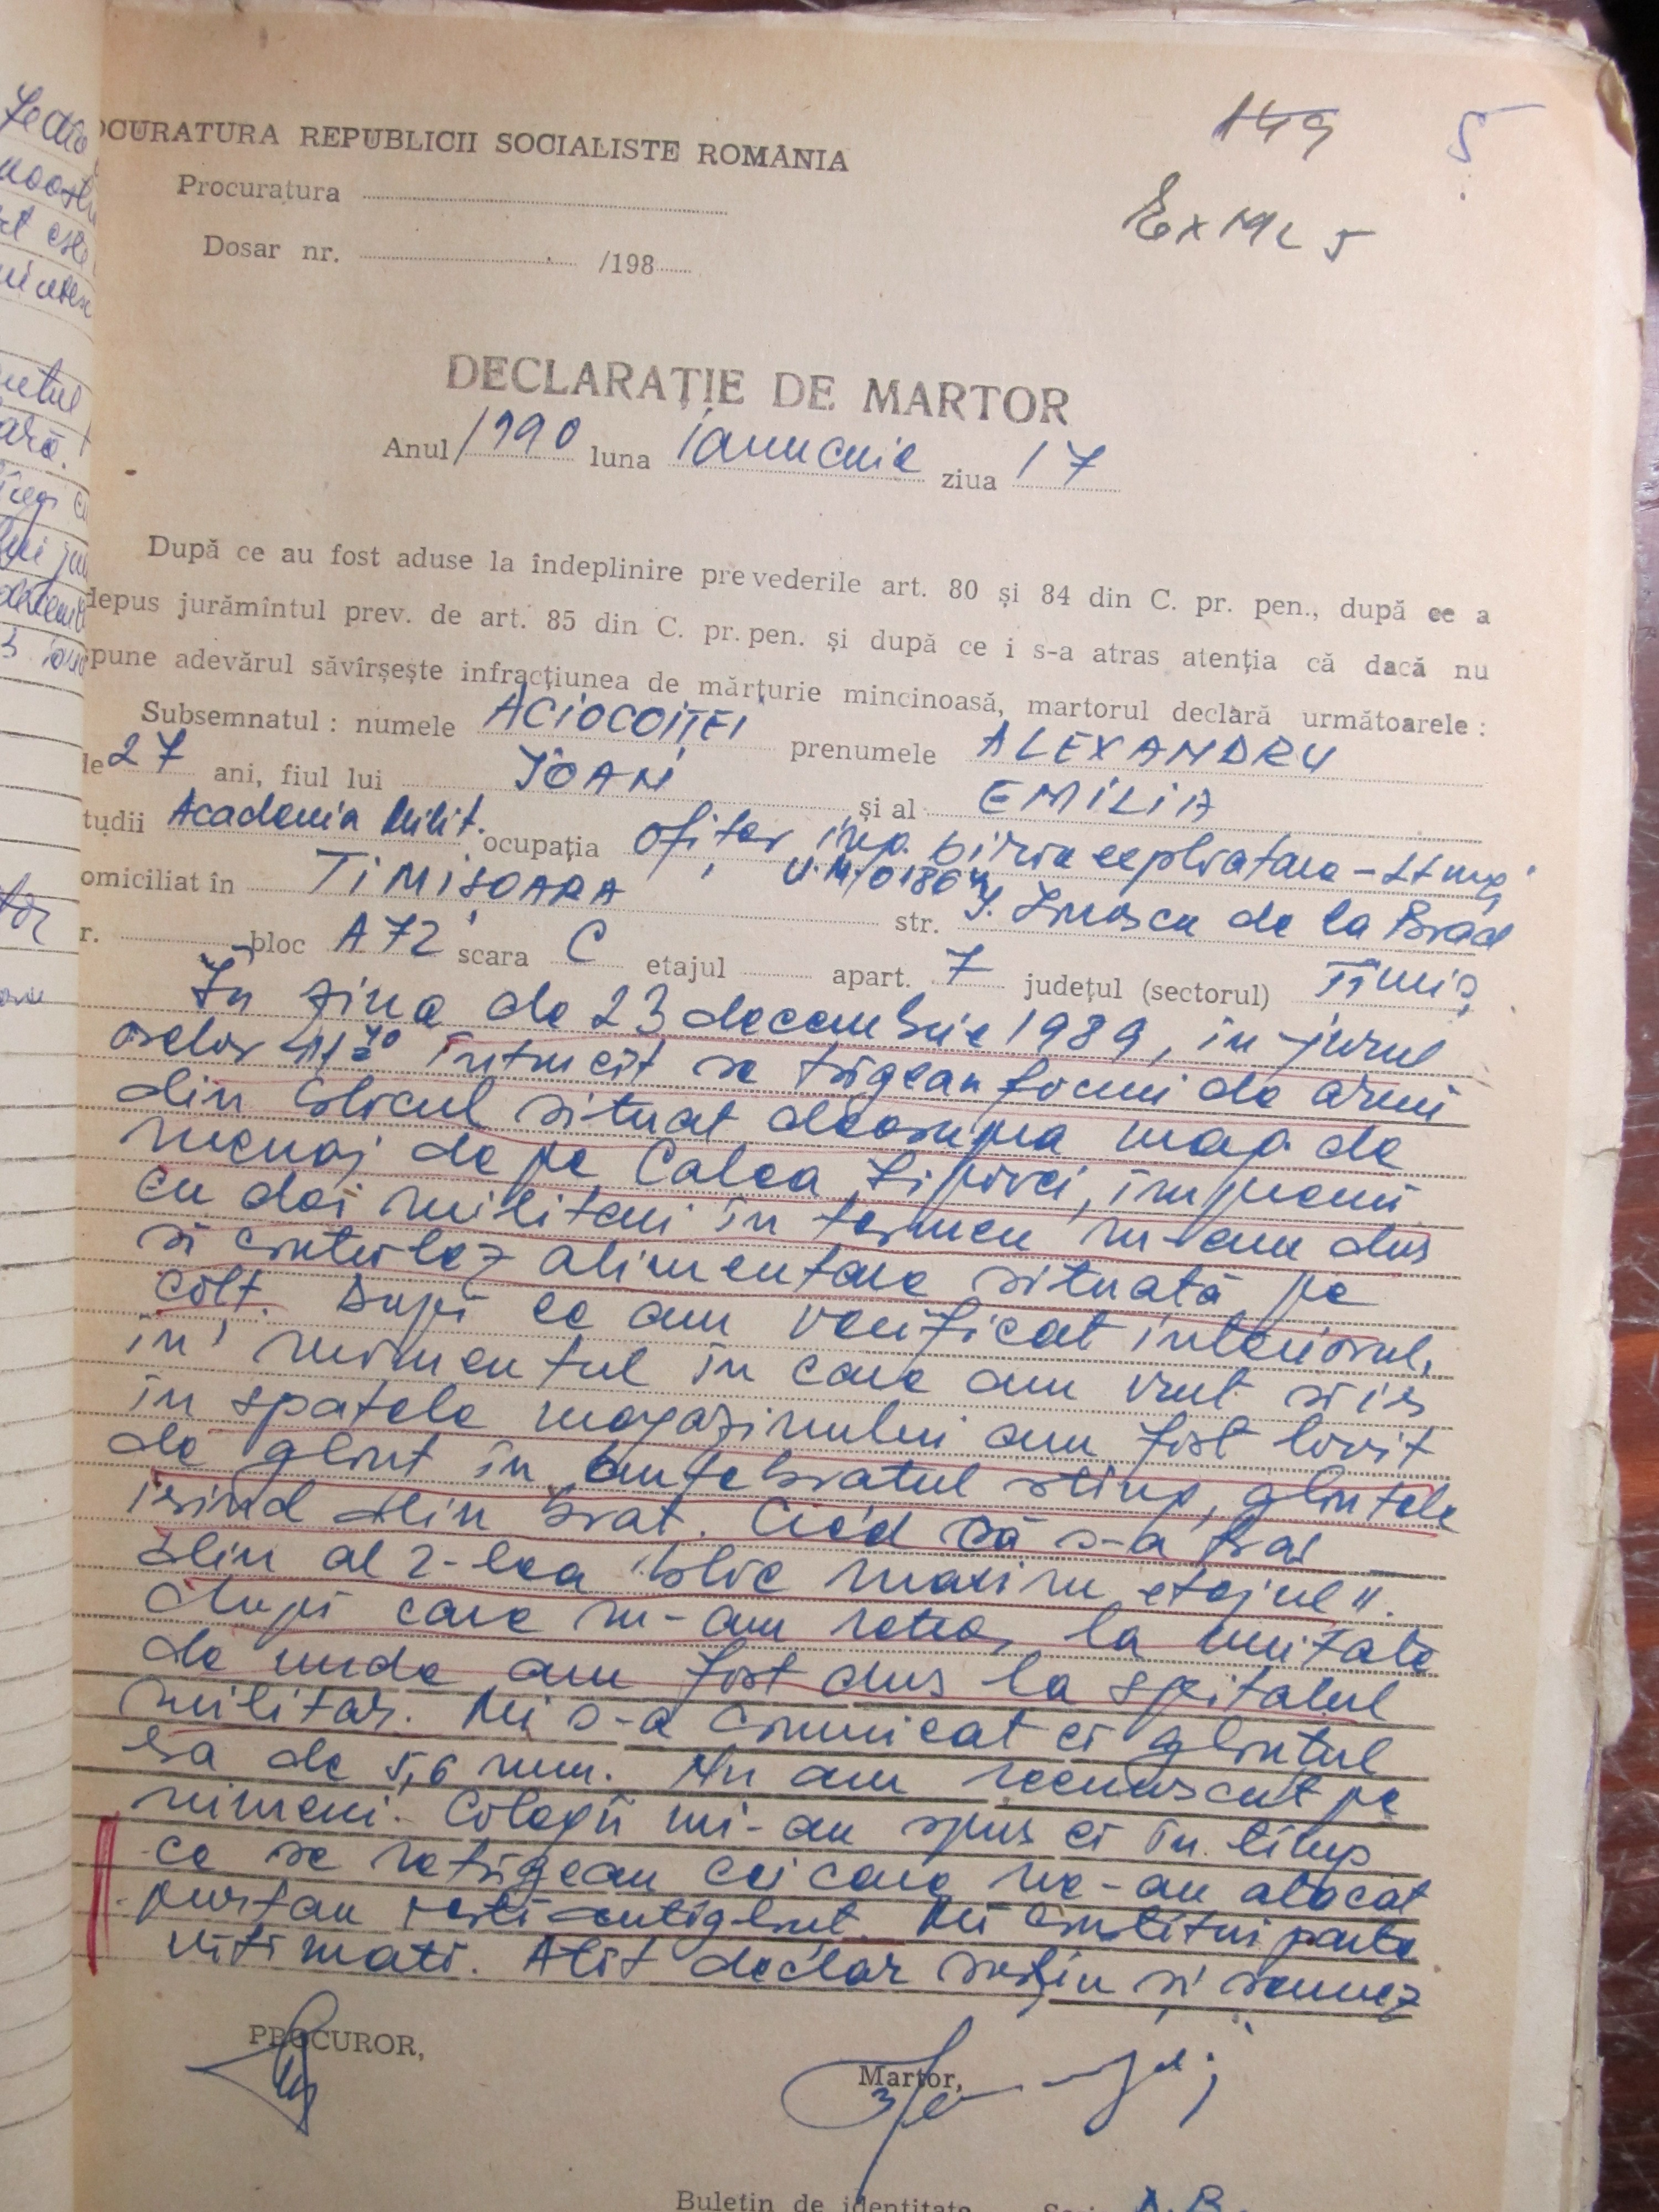 149 5
Ex ML 5
OCURATURA REPUBLICII SOCIALISTE ROMÂNIA
Procuratura
Dosar nr. /198
DECLARAȚIE DE MARTOR
Anul 1990 luna ianuarie ziua 17
După ce au fost aduse la îndeplinire prevederile art. 80 și 84 din C. pr. pen., după ce a
depus jurămîntul prev. de art. 85 din C. pr. pen. și după ce i s-a atras atenția că dacă nu
spune adevărul săvîrșește infracțiunea de mărturie mincinoasă, martorul declară următoarele :
Subsemnatul : numele ACIOCOIȚEI prenumele ALEXANDRU
de 27 ani, fiul lui IOAN și al EMILIA
tudii Academia Milit. ocupația ofițer
U.M. 01864
omiciliat în TIMIȘOARA str. de la Brad
r. bloc A72 scara C etajul apart. 7 județul (sectorul) Timiș
În ziua de 23 decembrie 1989, în jurul
orelor întrucît se trăgeau focuri de armă
din blocul situat deasupra mag. de
menaj de pe Calea Lipovei, împreună
cu doi militari în termen m-am dus
să controlez alimentara situată pe
colț. După ce am verificat interiorul,
în momentul în care am vrut să ies
în spatele magazinului am fost lovit
de glonț în antebrațul stîng, glontele
ieșind din braț. Cred că s-a tras
din al 2-lea bloc maxim etajul II.
După care m-am retras la unitate
de unde am fost dus la spitalul
militar. Mi s-a comunicat că glontul
era de 5,6 mm. Nu am recunoscut pe
nimeni. Colegii mi-au spus că în timp
ce se retrăgeau cei care ne-au atacat
purtau veste antiglonț. Mă constitui parte
vătămată. Atît declar susțin și semnez
PROCUROR,
Martor,
Buletin de identitate